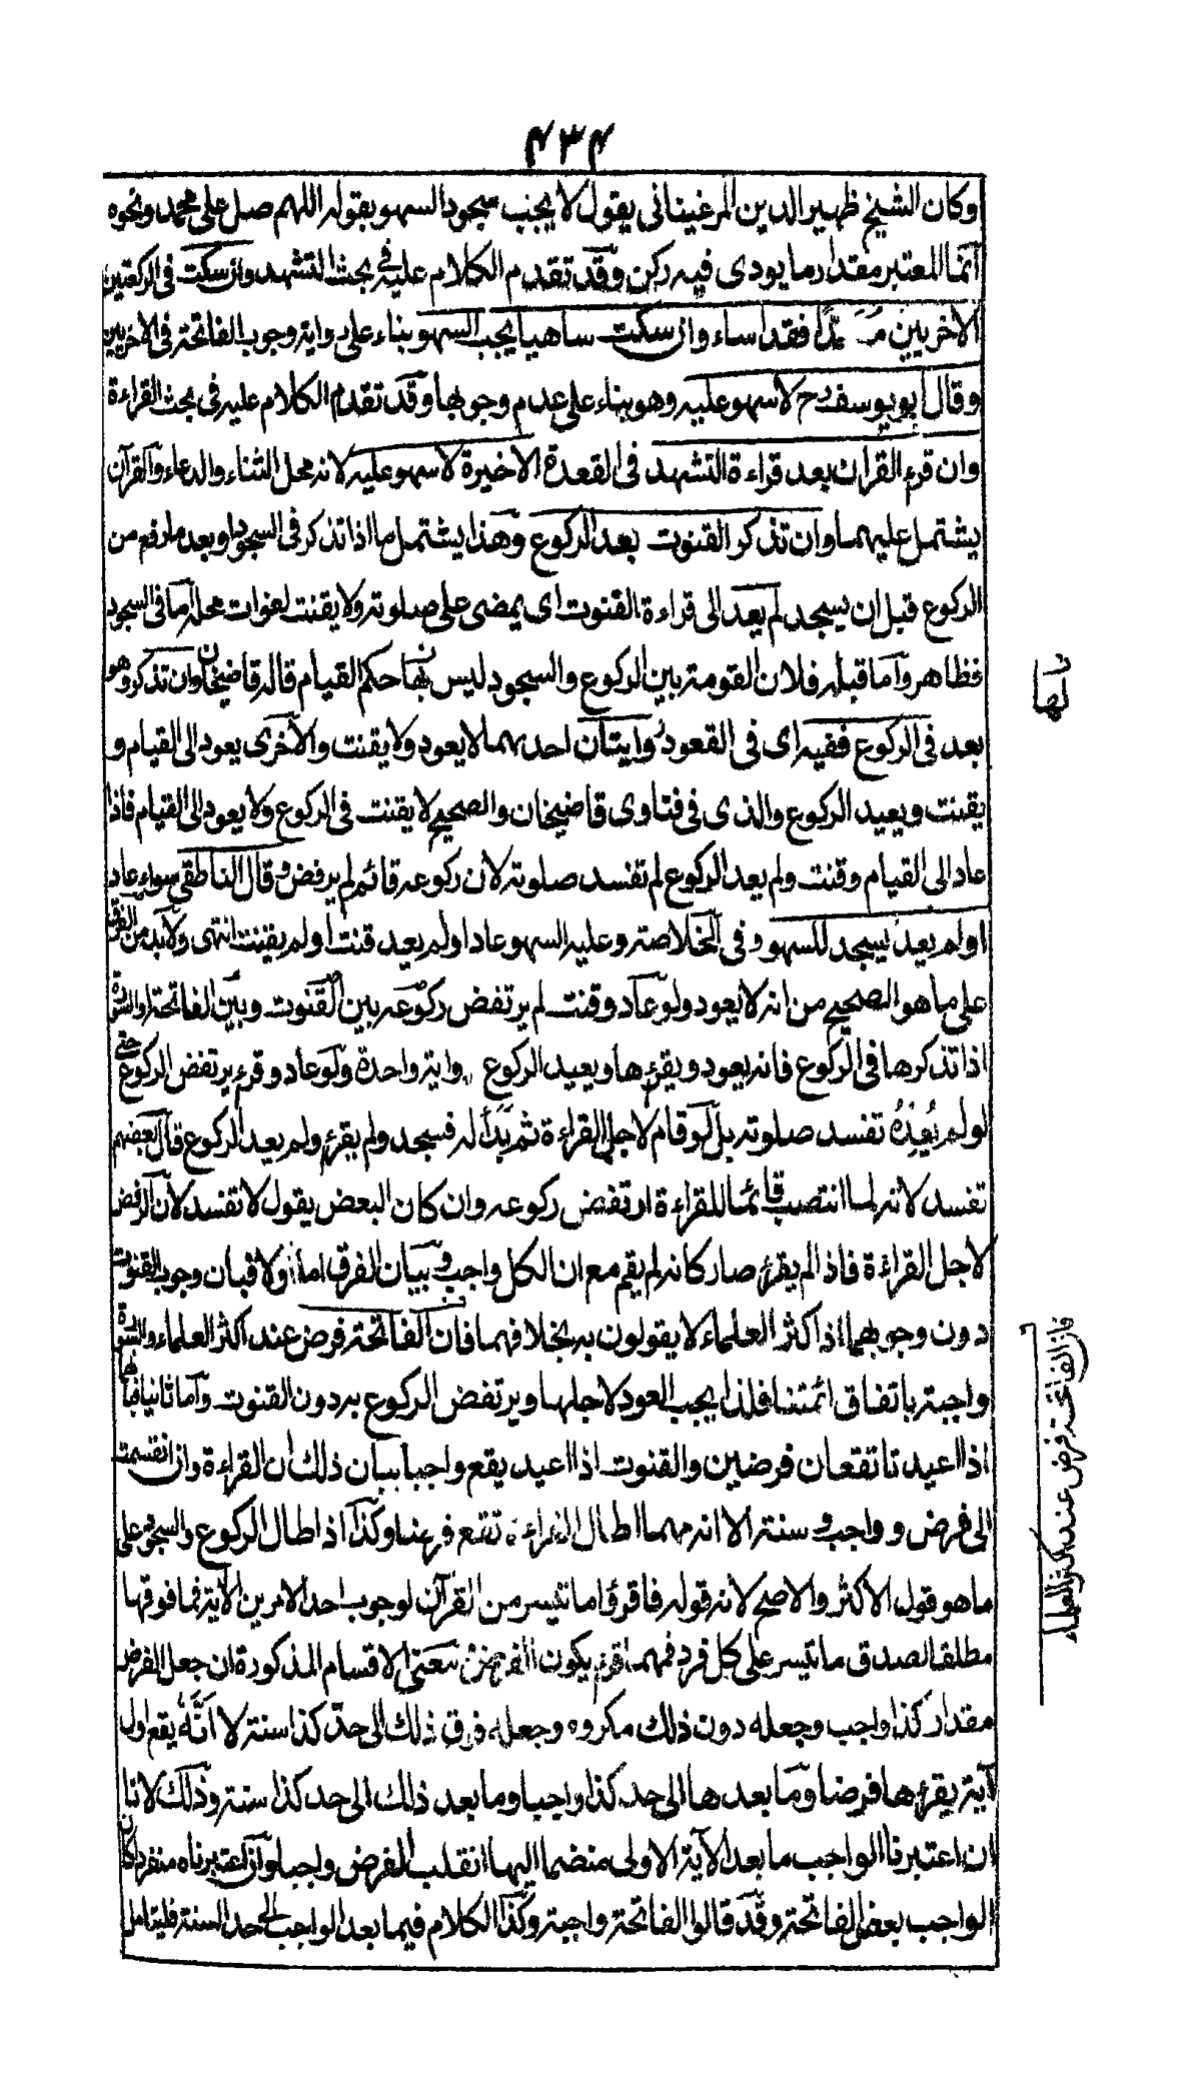 ۴۳۴
وكان الشيخ ظهير الدين المرغينانى يقول لا يجب سجود السهو بقوله اللهم صل على محمد ونحوه
انما المعتبر مقدار ما يودى فيه ركن وقد تقدم الكلام عليه فى بحث التشهد وان سكت فى الركعتين
الاخريين فقد اساء وان سكت ساهيا يجب السهو بناء على رواية وجوب الفاتحة فى الاخريين
وقال ابو يوسف رح لا سهو عليه وهو بناء على عدم وجوبها وقد تقدم الكلام عليه فى بحث القراءة
وان قرء القران بعد قراءة التشهد فى القعدة الاخيرة لا سهو عليه لانه محل الثناء والدعاء والقرآن
يشتمل عليهما وان تذكر القنوت بعد الركوع وهذا يشتمل ما اذا تذكر فى السجود او بعد ما رفع من
الركوع قبل ان يسجد لم يعد الى قراءة القنوت اى يمضى على صلوته ولا يقنت لفوات محله اما فى السجود
فظاهر واما قبله فلان القومة بين الركوع والسجود ليس لها حكم القيام قاله قاضيخان وان تذكر وهو
بعد فى الركوع ففيه اى فى القعود روايتان احدهما لا يعود ولا يقنت والاخرى يعود الى القيام و
يقنت ويعيد الركوع والذى فى فتاوى قاضيخان والصحيح لا يقنت فى الركوع ولا يعود الى القيام فاذا
عاد الى القيام وقنت ولم يعد الركوع لم تفسد صلوته لان ركوعه قائم لم يرفض وقال الناطقى سواء عاد
او لم يعد يسجد للسهو وفى الخلاصة وعليه السهو عاد او لم يعد قنت او لم يقنت انتهى ولا بد من الفرق
على ما هو الصحيح من انه لا يعود ولو عاد وقنت لم يرتفض ركوعه بين القنوت وبين الفاتحة او السورة
اذا تذكرها فى الركوع فانه يعود ويقرءها ويعيد الركوع رواية واحدة ولو عاد وقرء يرتفض الركوع حتى
لو لم يُعِدْهُ تفسد صلوته بل لو قام لاجل القراءة ثم بدأ له فسجد ولم يقرء ولم يعد الركوع قال بعضهم
تفسد لانه لما انتصب قائما للقراءة ارتفض ركوعه وان كان البعض يقول لا تفسد لان الرفض
لاجل القراءة فاذا لم يقرء صار كانه لم يقم مع ان الكل واجب وبيان الفرق اما اولا فبان وجوب القنوت
دون وجوبهما اذ اكثر العلماء لا يقولون به بخلافهما فان الفاتحة فرض عند اكثر العلماء والسورة
واجبة باتفاق ائمتنا فلذا يجب العود لاجلها ويرتفض الركوع به دون القنوت واما ثانيا فبانها
اذا اعيدتا تقعان فرضين والقنوت اذا اعيد يقع واجبا بيان ذلك ان القراءة وان انقسمت
الى فرض و واجب و سنة الا انه مهما اطال القراءة تقع فرضا وكذا اذا اطال الركوع والسجود على
ما هو قول الاكثر والاصح لانه قوله فاقرؤا ما تيسر من القرآن لوجوب احد الامرين الآية فما فوقها
مطلقا لصدق ما تيسر على كل فرد فمهما قرء يكون الفرض معنى الاقسام المذكورة ان جعل الفرض
مقدار كذا واجب وجعله دون ذلك مكروه وجعله فوق ذلك الى حدّ كذا سنة لا اَنَّهُ يقع اول
آية يقرءها فرضا وما بعدها الى حد كذا واجبا وما بعد ذلك الى حد كذا سنة وذلك لانا
ان اعتبرنا الواجب ما بعد الآية الاولى منضما اليها انقلب الفرض واجبا وان اعتبرناه منفردا كان
الواجب بعض الفاتحة وقد قالوا الفاتحة واجبة وكذا الكلام فيما بعد الواجب الى حد السنة فليتامل
لها
فان الفاتحة فرض عند اكثر العلماء